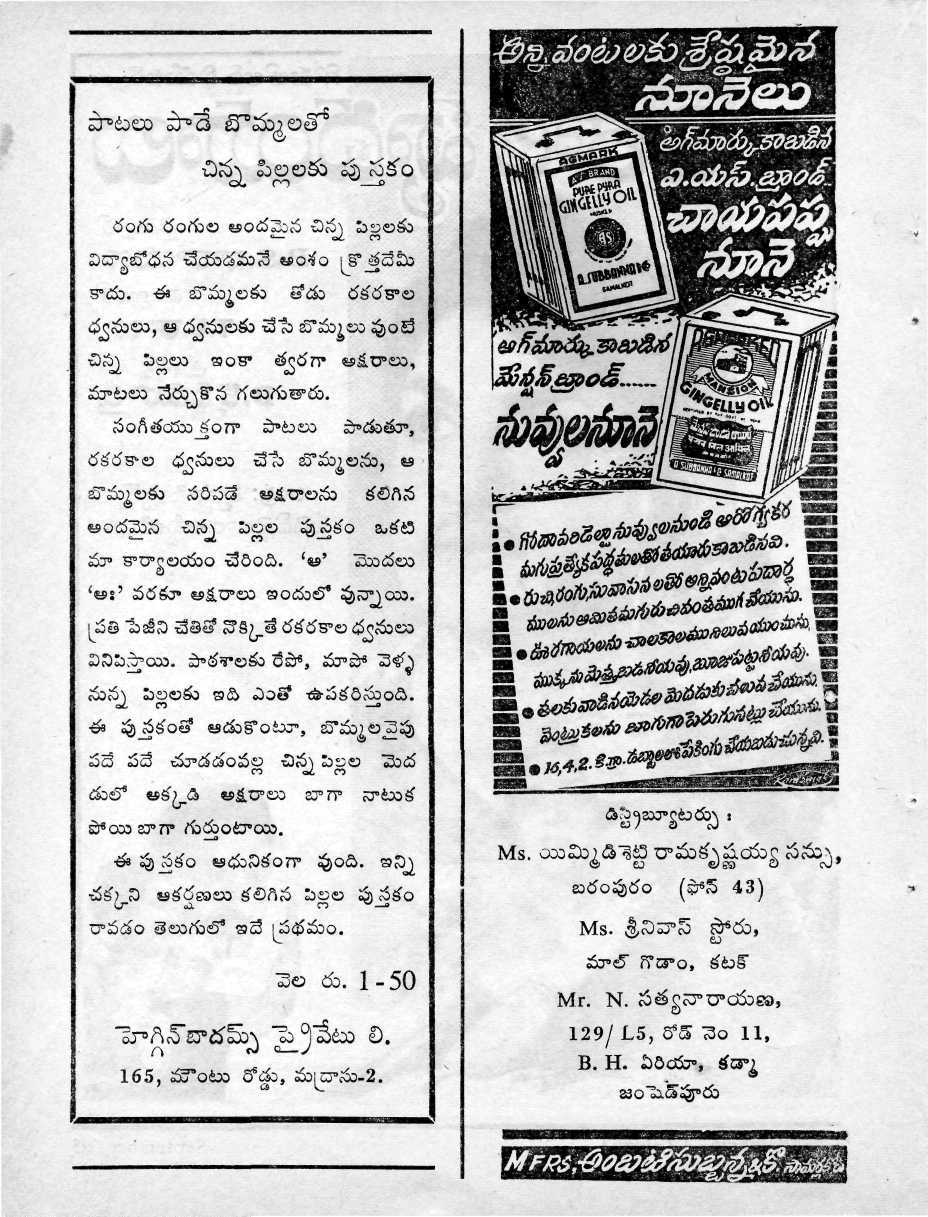 పాటలు పాడే బొమ్మలతో
చిన్న పిల్లలకు పుస్తకం
రంగు రంగుల అందమైన చిన్న పిల్లలకు
విద్యాబోధన చేయడమనే అంశం క్రొత్తదేమీ
కాదు. ఈ బొమ్మలకు తోడు రకరకాల
ధ్వనులు, ఆ ధ్వనులకు చేసే బొమ్మలు వుంటే
చిన్న పిల్లలు ఇంకా త్వరగా అక్షరాలు,
మాటలు నేర్చుకొన గలుగుతారు.
సంగీతయుక్తంగా పాటలు పాడుతూ,
రకరకాల ధ్వనులు చేసే బొమ్మలను, ఆ
బొమ్మలకు సరిపడే అక్షరాలను కలిగిన
అందమైన చిన్న పిల్లల పుస్తకం ఒకటి
మా కార్యాలయం చేరింది. ‘అ’ మొదలు
‘అః’ వరకూ అక్షరాలు ఇందులో వున్నాయి.
ప్రతి పేజీని చేతితో నొక్కితే రకరకాల ధ్వనులు
వినిపిస్తాయి. పాఠశాలకు రేపో, మాపో వెళ్ళ
నున్న పిల్లలకు ఇది ఎంతో ఉపకరిస్తుంది.
ఈ పుస్తకంతో ఆడుకొంటూ, బొమ్మలవైపు
పదే పదే చూడడంవల్ల చిన్న పిల్లల మెద
డులో అక్కడి అక్షరాలు బాగా నాటుక
పోయి బాగా గుర్తుంటాయి.
ఈ పుస్తకం ఆధునికంగా వుంది. ఇన్ని
చక్కని ఆకర్షణలు కలిగిన పిల్లల పుస్తకం
రావడం తెలుగులో ఇదే ప్రథమం.
వెల రు. 1-50
హెగ్గిన్‌బాదమ్స్ ప్రైవేటు లి.
165, మౌంటు రోడ్డు, మద్రాసు-2.
అన్ని వంటలకు శ్రేష్ఠమైన
నూనెలు
అగ్‌మార్కు కాబడిన
ఎ.యస్. బ్రాండ్
చాయపప్పు
నూనె
AGMARK
BRAND
PURE PYRA
GINGELLY OIL
A. SUBBANNA & Co
SAMALKOT
అగ్‌మార్కు కాబడిన
మేన్షన్ బ్రాండ్......
నువ్వులనూనె
AGMARKED
MANSION
GINGELLY OIL
A SUBBANNA & Co SAMALKOT
● గోదావరిడెల్టా నువ్వులనుండి ఆరోగ్యకర
మగు ప్రత్యేకపద్ధతులతో తయారు కాబడినవి.
● రుచి, రంగు, సువాసనలతో అన్నివంటపదార్థ
ములను అమితమగు రుచివంతముగ చేయును.
● ఊరగాయలను చాలకాలము నిలువయుంచును,
ముక్కను మెత్తబడనీయవు, బూజుపట్టనీయవు.
● తలకువాడినయెడల మెదడుకు చలువ చేయును,
వెంట్రుకలను బాగుగా పెరుగునట్లు చేయును.
● 16,4,2. కి.గ్రా. డబ్బాలలో పేకింగు చేయబడుచున్నవి.
డిస్ట్రిబ్యూటర్సు :
Ms. యిమ్మిడిశెట్టి రామకృష్ణయ్య సన్సు,
బరంపురం (ఫోన్ 43)
Ms. శ్రీనివాస్ స్టోరు,
మాల్ గొడాం, కటక్
Mr. N. సత్యనారాయణ,
129/ L5, రోడ్ నెం 11,
B. H. ఏరియా, కడ్మా
జంషెడ్‌పూరు
MFRS, అంబటి సుబ్బన్న & కో.